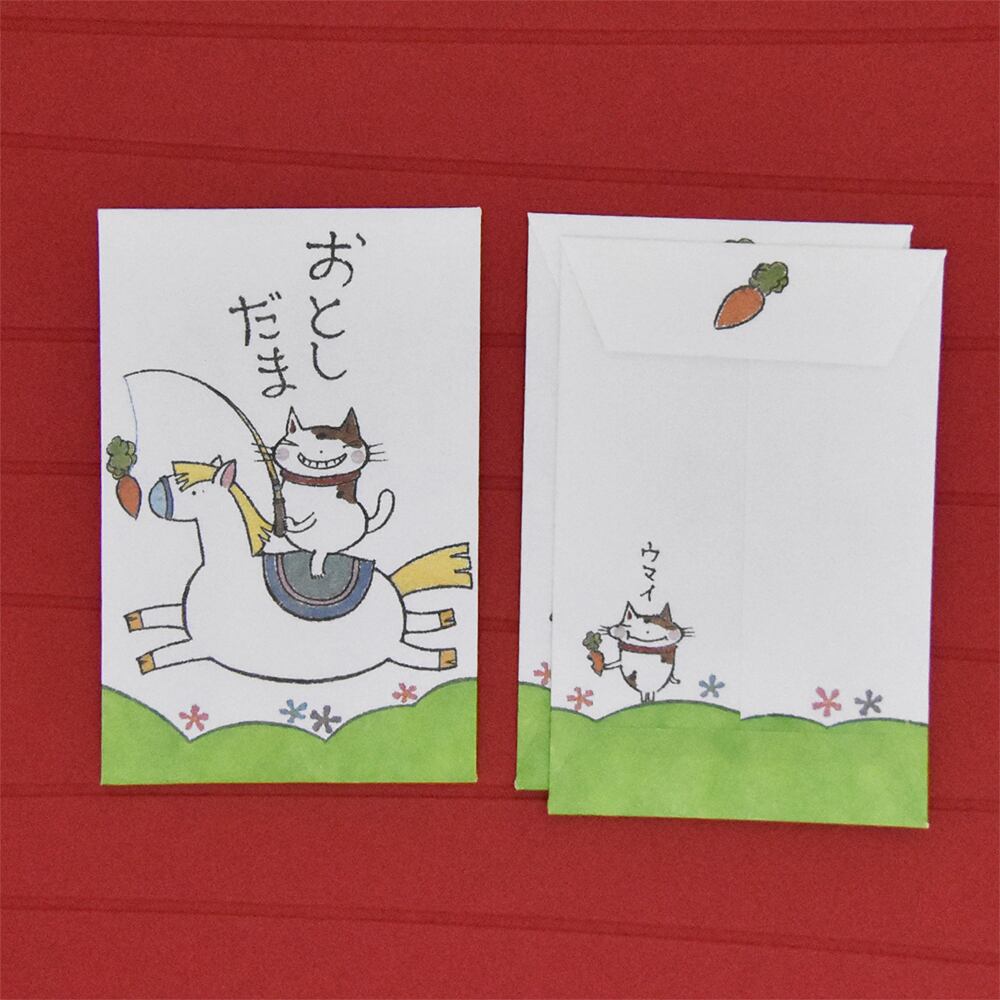 おとし
だま
ウマイ